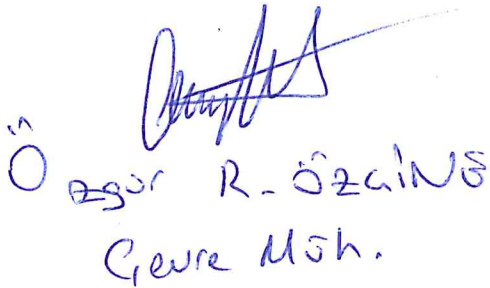 Özgür R. ÖZGİNÖ
Çevre Müh.